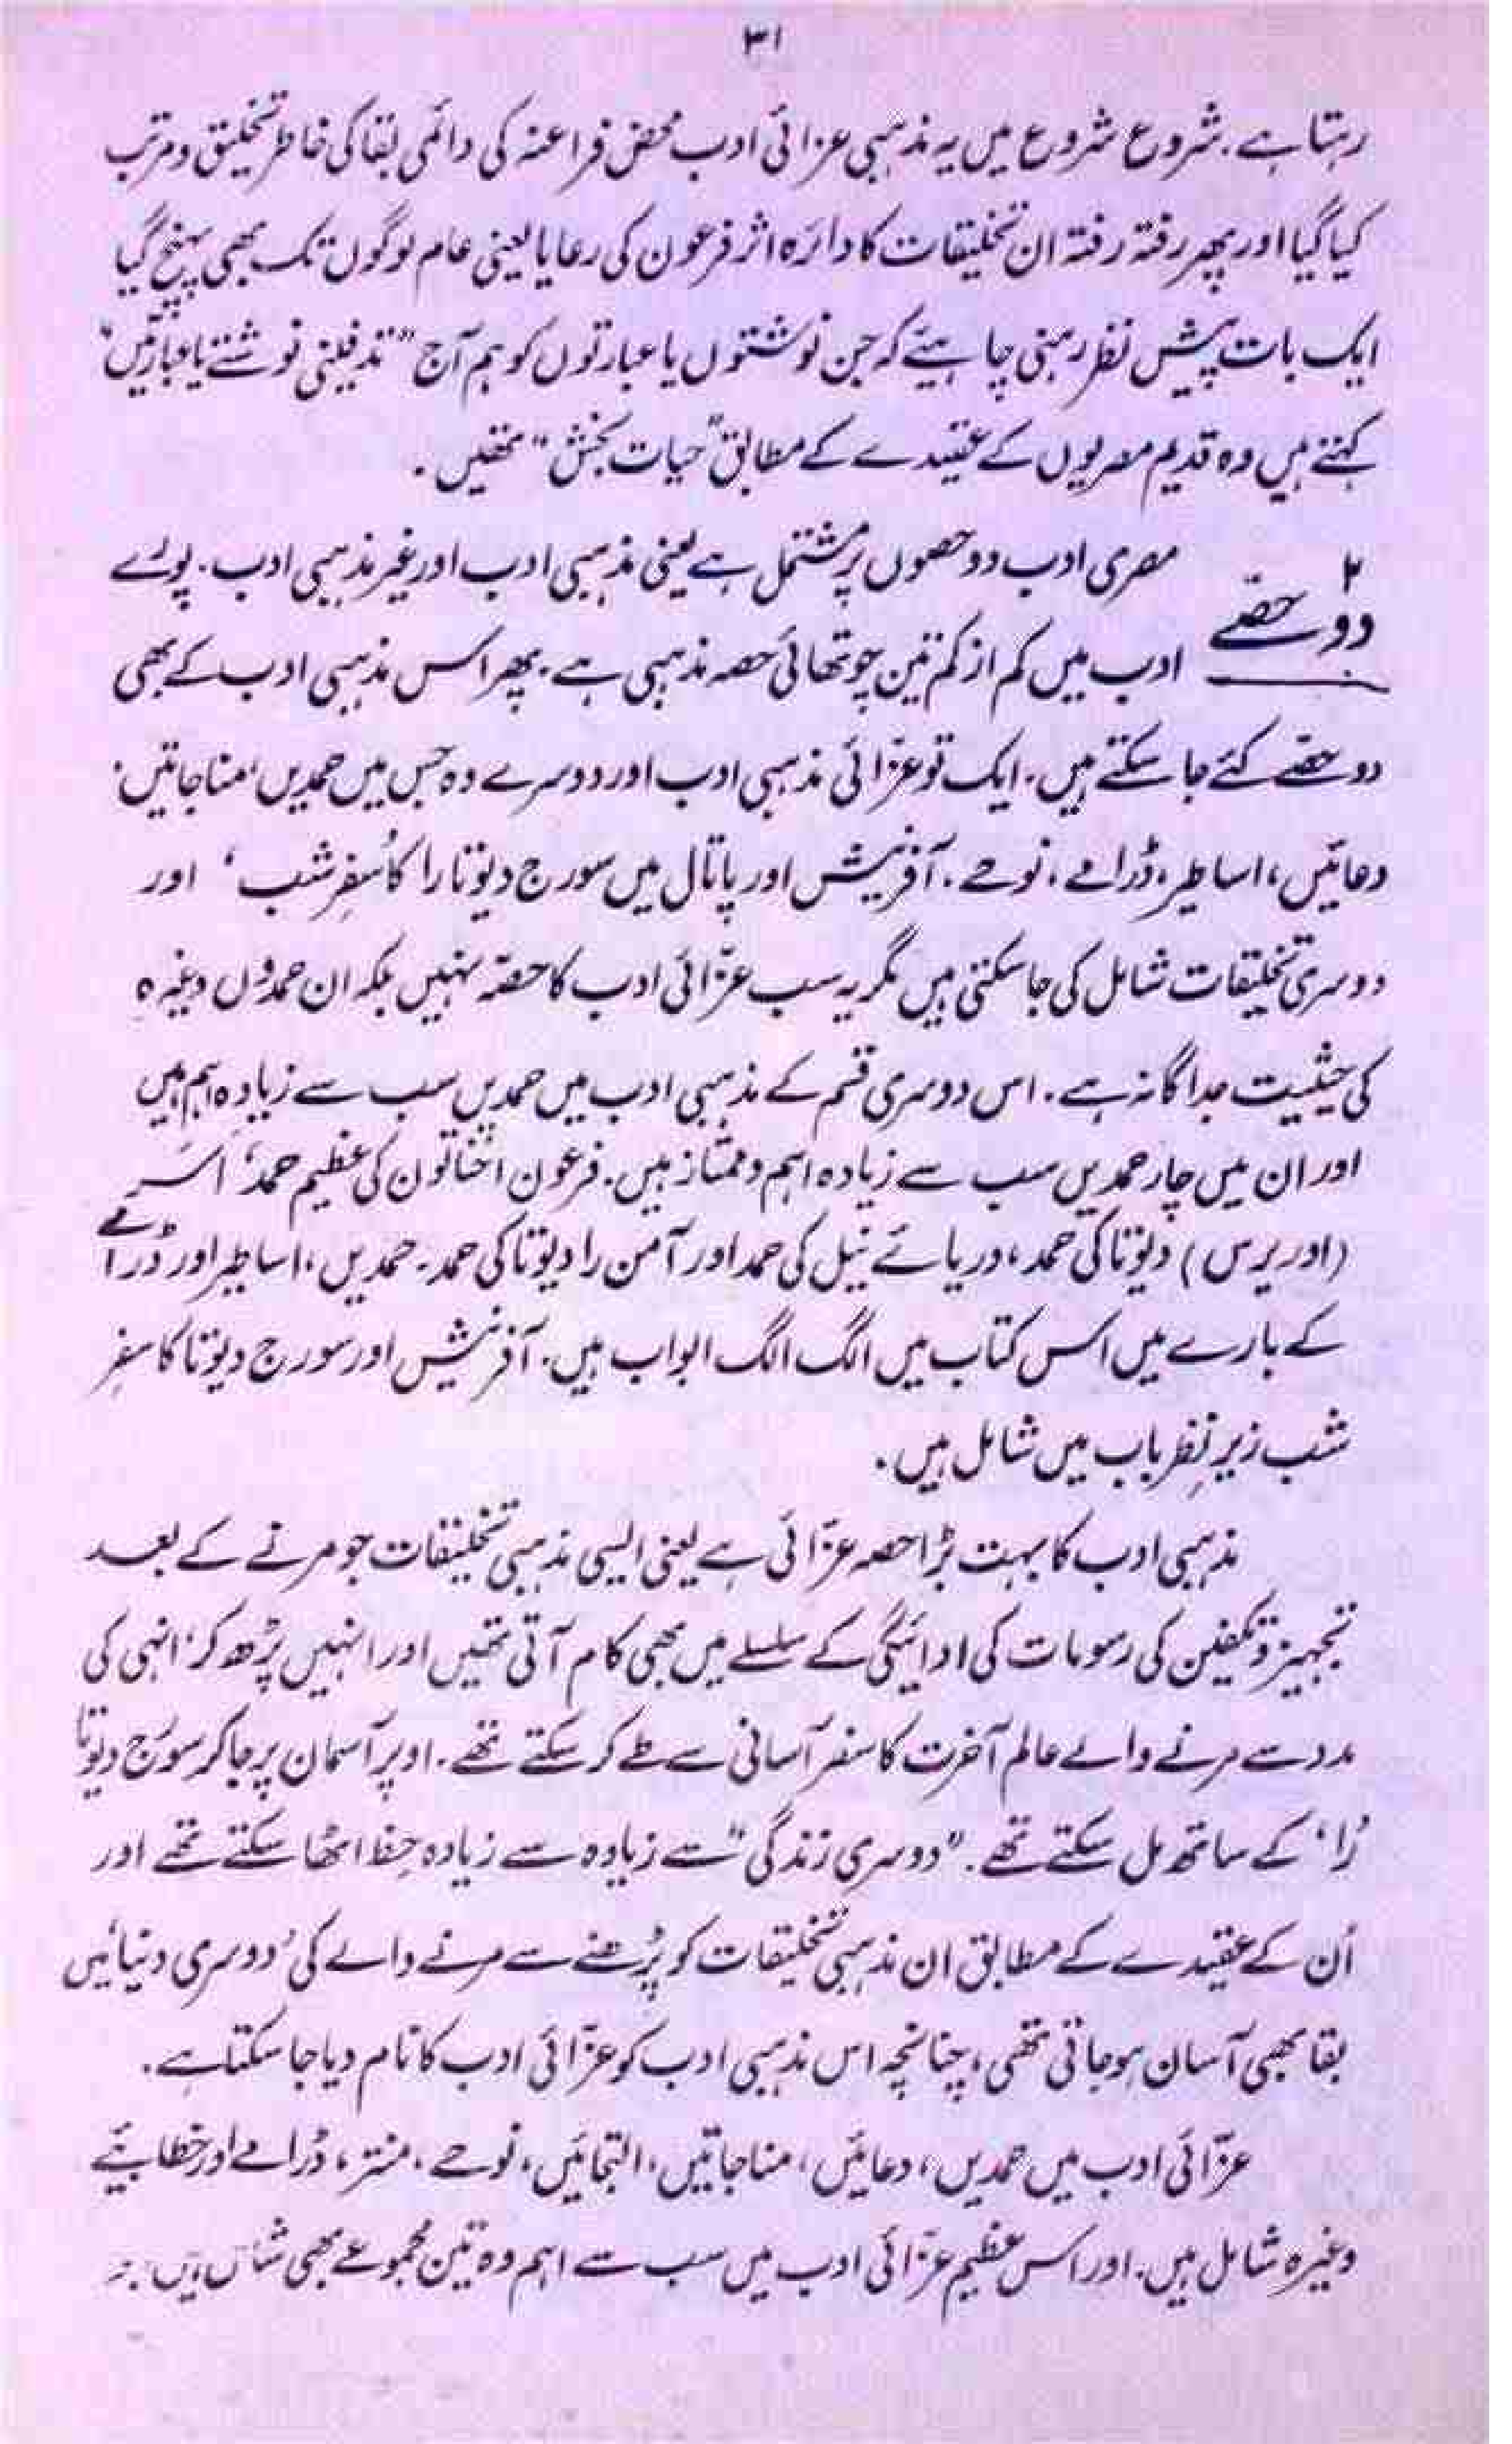 ۳۱
رہتا ہے۔ شروع شروع میں یہ مذہبی عزائی ادب محض فراعنہ کی دائمی بقا کی خاطر تخلیق و مرتب
کیا گیا اور پھر رفتہ رفتہ ان تخلیقات کا دائرہ اثر فرعون کی رعایا یعنی عام لوگوں تک بھی پہنچ گیا
ایک بات پیش نظر رہنی چاہیئے کہ جن نوشتوں یا عبارتوں کو ہم آج "تدفینی نوشتے یا عبارتیں"
کہتے ہیں وہ قدیم مصریوں کے عقیدے کے مطابق "حیات بخش" تھیں۔
۲ مصری ادب دو حصوں پر مشتمل ہے یعنی مذہبی ادب اور غیر مذہبی ادب۔ پورے
دو حصے ادب میں کم از کم تین چوتھائی حصہ مذہبی ہے۔ پھر اس مذہبی ادب کے بھی
دو حصّے کئے جا سکتے ہیں۔ ایک تو عزّائی مذہبی ادب اور دوسرے وہ جس میں حمدیں، مناجاتیں،
دعائیں، اساطیر، ڈرامے، نوحے۔ آفرنیش اور پاتال میں سورج دیوتا را کا 'سفرِ شب' اور
دوسری تخلیقات شامل کی جا سکتی ہیں مگر یہ سب عزّائی ادب کا حصّہ نہیں بلکہ ان حمدوں وغیرہ
کی حیثیت جداگانہ ہے۔ اس دوسری قسم کے مذہبی ادب میں حمدیں سب سے زیادہ اہم ہیں
اور ان میں چار حمدیں سب سے زیادہ اہم و ممتاز ہیں۔ فرعون اخناتون کی عظیم حمد، اسَر
(اوریرس) دیوتا کی حمد، دریائے نیل کی حمد اور آمن را دیوتا کی حمد۔ حمدیں، اساطیر اور ڈرامے
کے بارے میں اس کتاب میں الگ الگ ابواب ہیں۔ آفرنیش اور سورج دیوتا کا سفرِ
شب زیرِ نظر باب میں شامل ہیں۔
مذہبی ادب کا بہت بڑا حصہ عزّائی ہے یعنی ایسی مذہبی تخلیقات جو مرنے کے بعد
تجہیز و تکفین کی رسومات کی ادائیگی کے سلسلے میں بھی کام آتی تھیں اور انہیں پڑھ کر، انہی کی
مدد سے مرنے والے عالم آخرت کا سفر آسانی سے طے کر سکتے تھے۔ اوپر آسمان پر جا کر سورج دیوتا
'را' کے ساتھ مل سکتے تھے۔ "دوسری زندگی" سے زیادہ سے زیادہ حظ اٹھا سکتے تھے اور
اُن کے عقیدے کے مطابق ان مذہبی تخلیقات کو پڑھنے سے مرنے والے کی 'دوسری دنیا' میں
بقا بھی آسان ہو جاتی تھی، چنانچہ اس مذہبی ادب کو عزّائی ادب کا نام دیا جا سکتا ہے۔
عزّائی ادب میں حمدیں، دعائیں، مناجاتیں، التجائیں، نوحے، منتر، ڈرامے اور خطابیئے
وغیرہ شامل ہیں۔ اور اس عظیم عزّائی ادب میں سب سے اہم وہ تین مجموعے بھی شامل ہیں